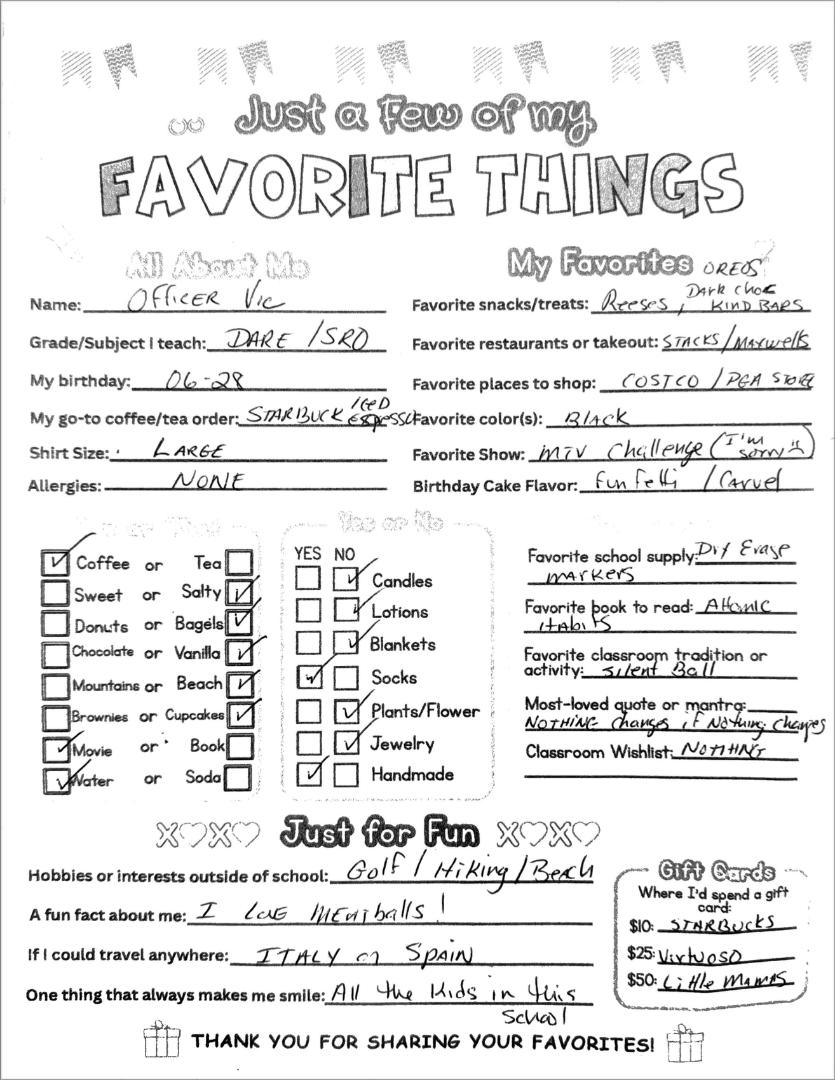 Just a Few of my
FAVORITE THINGS
All About Me
Name: OFFICER Vic
Grade/Subject I teach: DARE / SRO
My birthday: 06-28
My go-to coffee/tea order: STARBUCK ICED Espresso
Shirt Size: LARGE
Allergies: NONE
My Favorites OREOS
Favorite snacks/treats: Reeses, Dark Choc KIND BARS
Favorite restaurants or takeout: STACKS / Maxwells
Favorite places to shop: COSTCO / PGA STORE
Favorite color(s): BLACK
Favorite Show: MTV Challenge (I'm sorry)
Birthday Cake Flavor: Funfetti / Carvel
Coffee or Tea
Sweet or Salty
Donuts or Bagels
Chocolate or Vanilla
Mountains or Beach
Brownies or Cupcakes
Movie or Book
Water or Soda
Yes or No
YES NO
Candles
Lotions
Blankets
Socks
Plants/Flower
Jewelry
Handmade
Favorite school supply: Dry Erase
markers
Favorite book to read: Atomic
Habits
Favorite classroom tradition or
activity: Silent Ball
Most-loved quote or mantra:
NOTHING changes if Nothing changes
Classroom Wishlist: NOTHING
XOXO Just for Fun XOXO
Hobbies or interests outside of school: Golf / Hiking / Beach
A fun fact about me: I Love Meatballs!
If I could travel anywhere: ITALY or SPAIN
One thing that always makes me smile: All the Kids in this
School
Gift Cards
Where I'd spend a gift
card:
$10: STARBUCKS
$25: Virtuoso
$50: Little Mamas
THANK YOU FOR SHARING YOUR FAVORITES!